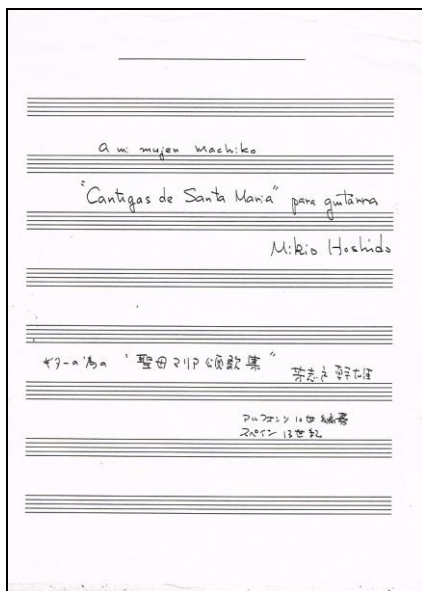 A mi mujer Machiko
"Cantigas de Santa Maria" para guitarra
Mikio Hoshido
ギターの為の "聖母マリア頌歌集"
幹雄
アルフォンソ10世編纂
スペイン 13世紀